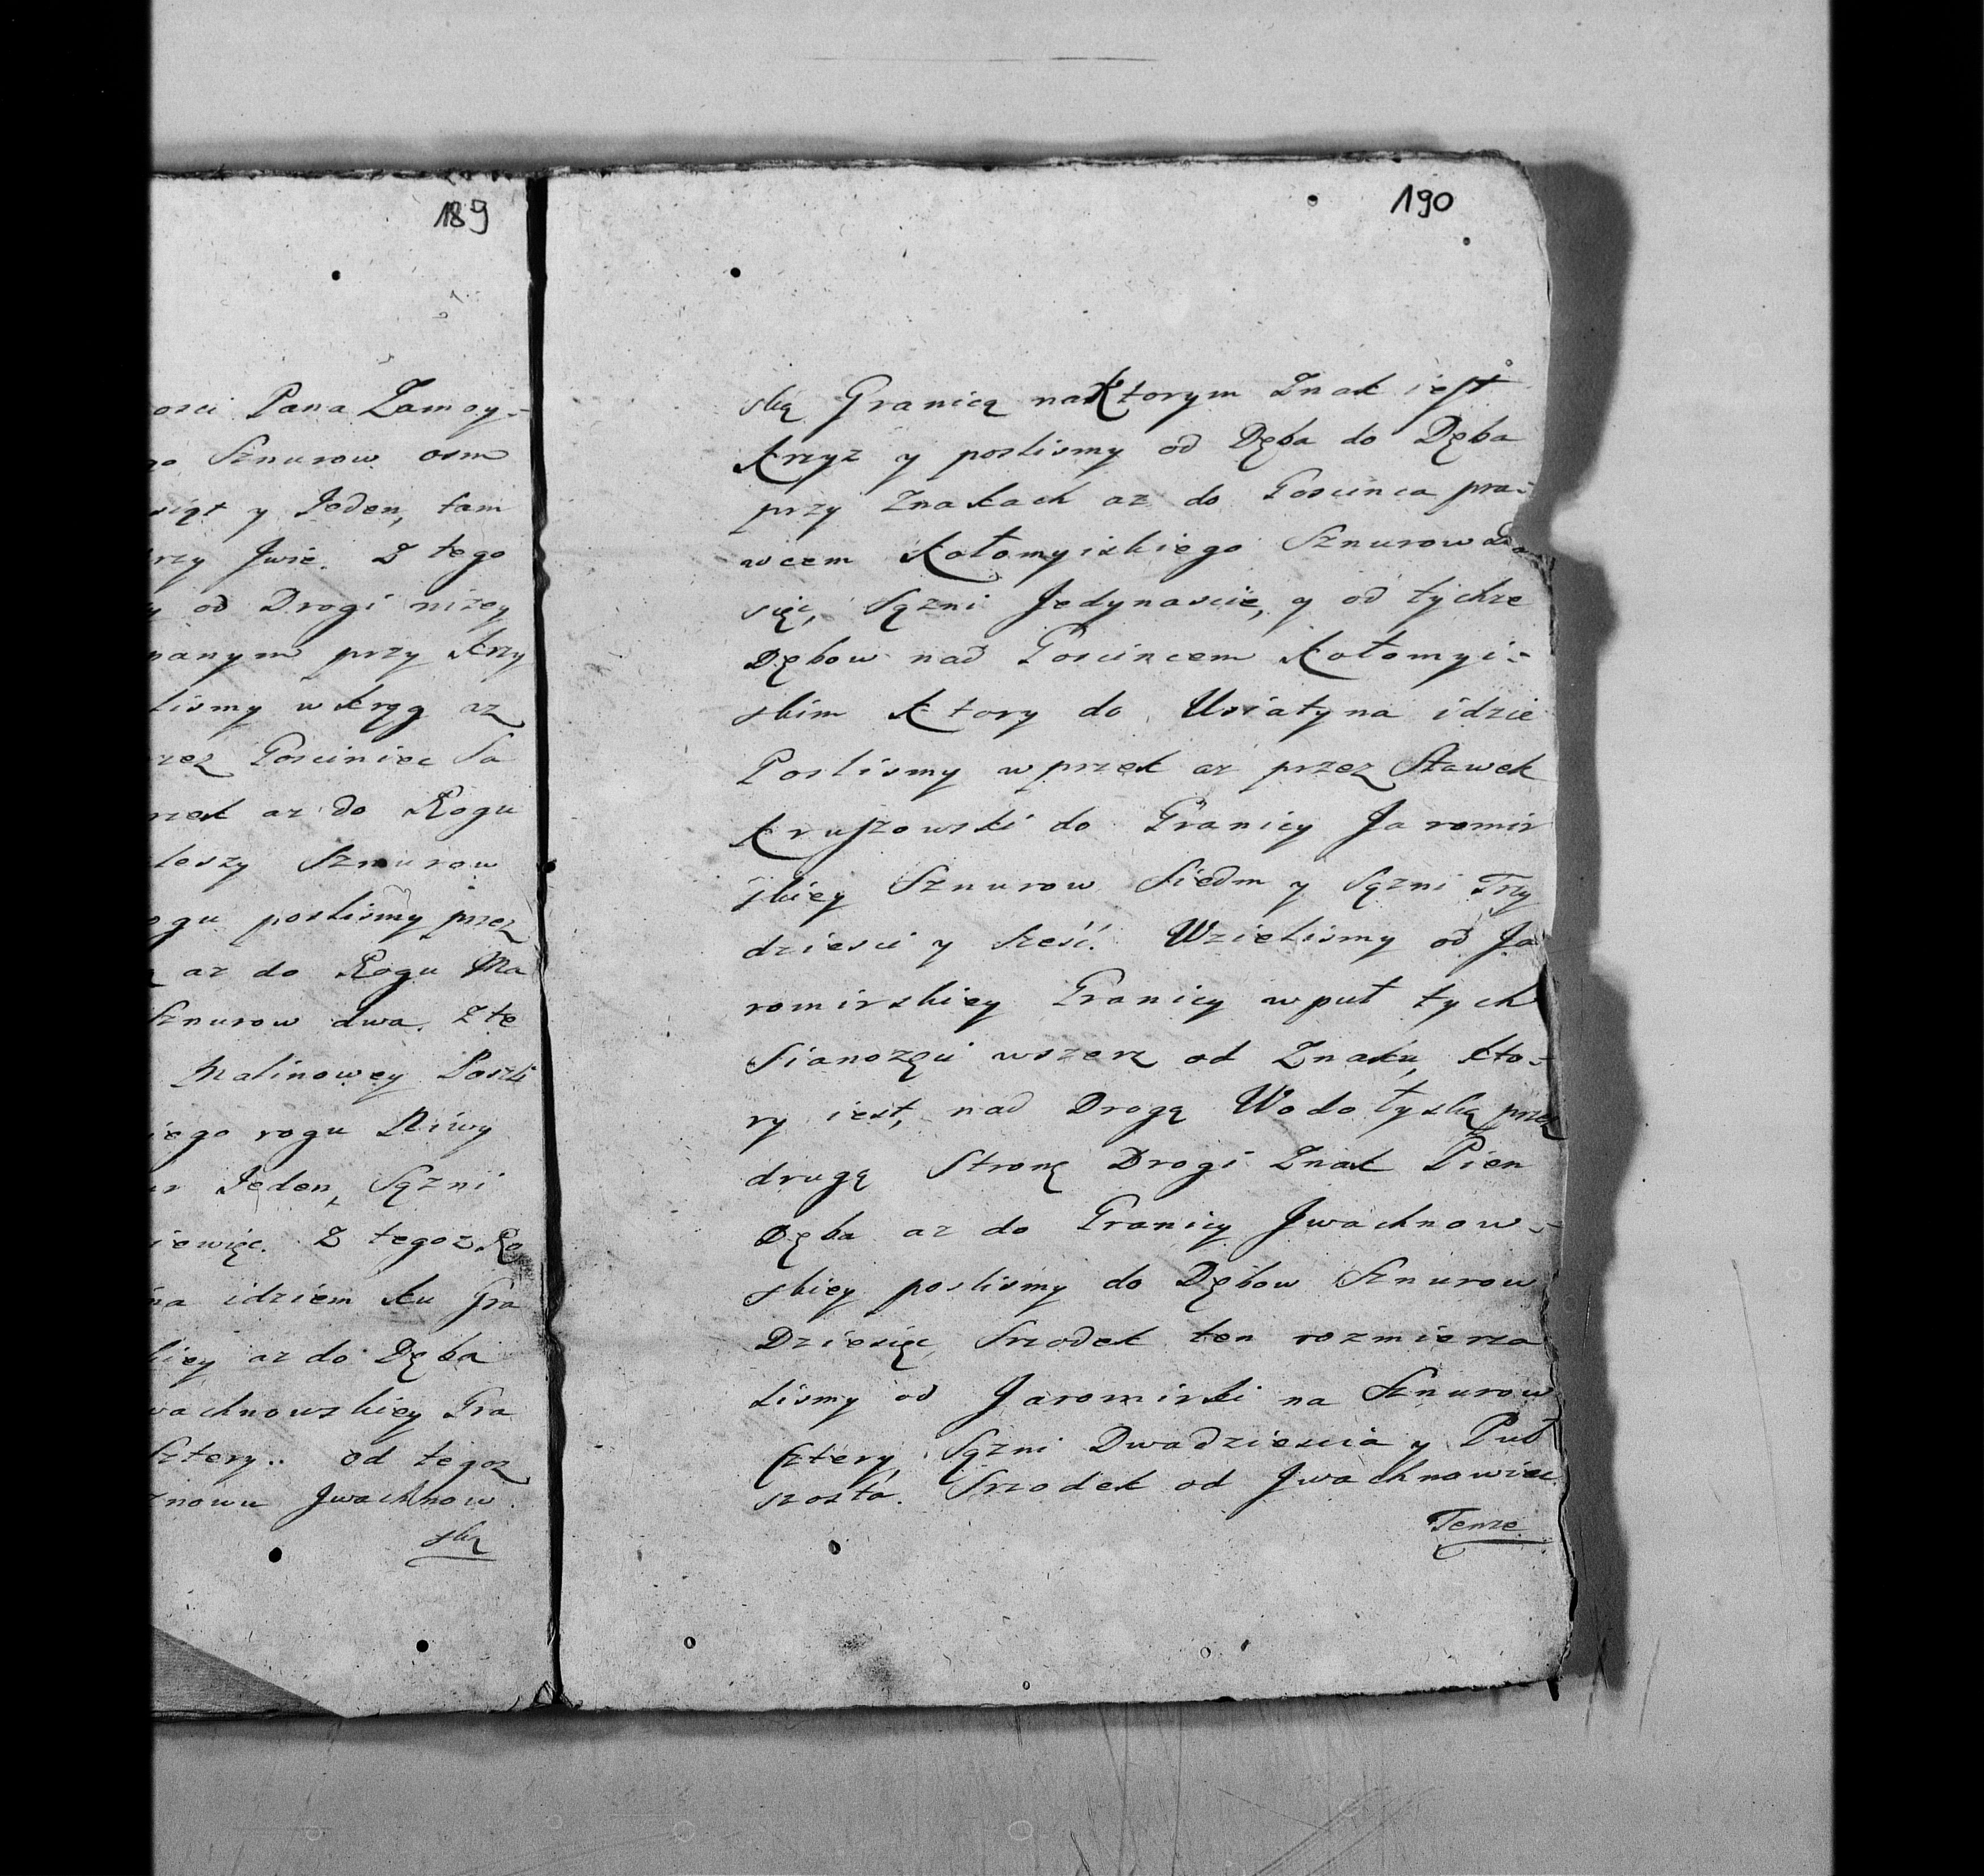 189
osci Pana Zamoy-
go Sznurow osm
siąt y Jeden, tam
rzy Jwie. Z tego
y od Drogi nizey
panym przy Krzy
lismy wkrąg az
rzez Gosciniec Sa
rzek az do Rogu
leszy Sznurow
ogu poslismy przez
az do Rogu Ma
Sznurow dwa. Z te
Malinowey Poszli
iego rogu Niwy
ur Jeden, Sązni
iewięc. Z tegoz Ro
na idziem ku Gra
kiey az do Dęba
wachnowskiey Gra
Cztery.. od tegoz
znowu Jwachnow.
ską
190
ską Granicą na Ktorym Znak iest
Krzyz y poslismy od Dęba do Dęba
przy Znakach az do Goscinca pra-
wcem Kołomyiskiego Sznurow
sięc, Sązni Jedynascie, y od tychze
Dębow nad Goscincem Kołomyi-
skim Ktory do Usiatyna idzie
Poslismy wprzek az przez Stawek
Kruszowski do Granicy Jaromir
skiey Sznurow Siedm y Sązni Trzy
dziesci y sześć. Wzielismy od Ja
romirskiey Granicy wpuł tych
Sianozęci wszerz od Znaku, kto-
ry iest, nad Drogą Wodotyską przez
drugą Stronę Drogi Znak Pien
Dęba az do Granicy Jwachnow-
skiey poslismy do Dębow Sznurow
Dziesięc, Srzodek ten rozmierza
lismy od Jaromirki na Sznurow
Cztery, Sązni Dwadziescia y Puł
szosta. Srzodek od Jwachnowiec
Tenze